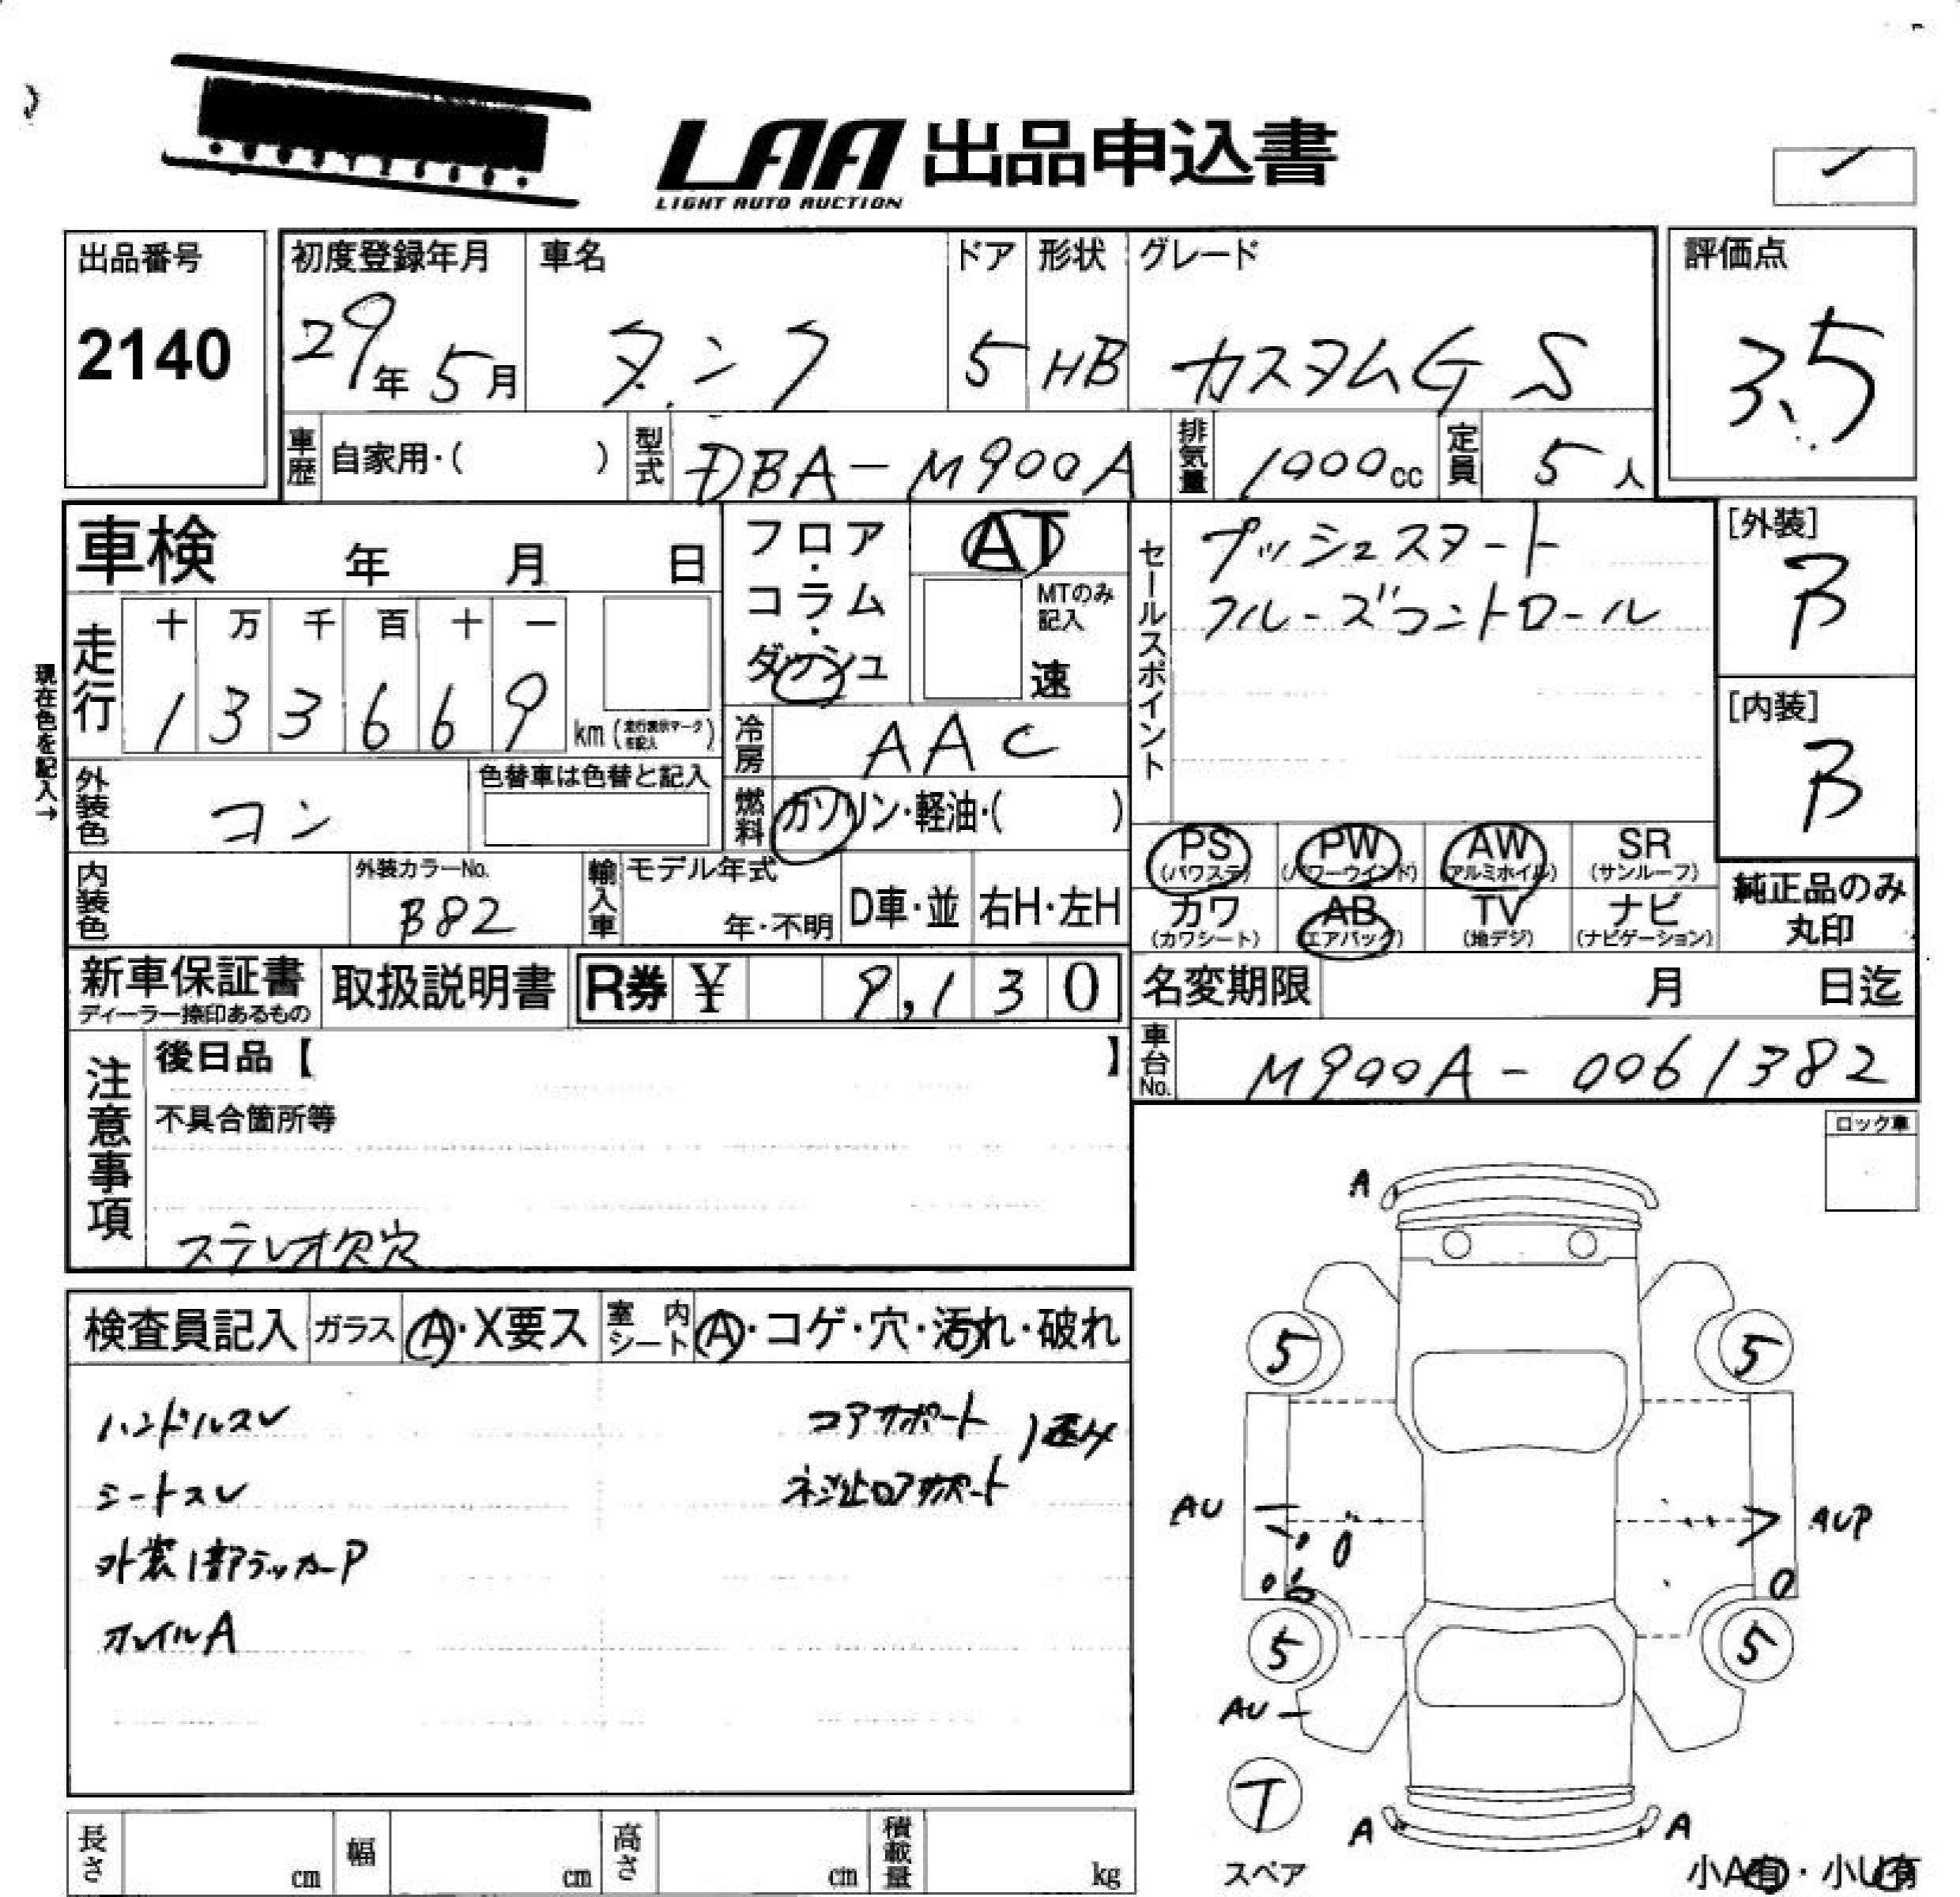 LAA 出品申込書
LIGHT AUTO AUCTION
出品番号
2140
初度登録年月
29年 5月
車名
タンク
ドア
5
形状
HB
グレード
カスタムG S
評価点
3.5
車歴 自家用・( )
型式 DBA-M900A
排気量 1000cc
定員 5人
車検 年 月 日
フロア・コラム・ダッシュ
AT
MTのみ記入
速
セールスポイント
プッシュスタート
クルーズコントロール
[外装]
B
[内装]
B
現在色を記入→
走行
十 万 千 百 十 一
1 3 3 6 6 9
km (走行表示マーク を記入)
冷房 AAC
燃料 ガソリン・軽油・( )
外装色 コン
色替車は色替と記入
内装色
外装カラーNo.
B82
輸入車
モデル年式
年・不明
D車・並
右H・左H
PS (パワステ)
PW (パワーウインド)
AW (アルミホイル)
SR (サンルーフ)
カワ (カワシート)
AB (エアバッグ)
TV (地デジ)
ナビ (ナビゲーション)
純正品のみ
丸印
新車保証書
ディーラー捺印あるもの
取扱説明書
R券 ¥ 9,130
名変期限 月 日迄
車台No. M900A-0061382
注意事項
後日品【 】
不具合箇所等
ステレオ欠穴
ロック車
検査員記入
ガラス A・X要ス
室内シート A・コゲ・穴・汚れ・破れ
ハンドルスレ
シートスレ
外装1部タッカーP
ホイルA
コアサポート
ネジ止ロアサポート
歪み
A
5
5
AU
AUP
5
5
AU
T
スペア
A
A
小A有・小U有
長さ cm
幅 cm
高さ cm
積載量 kg